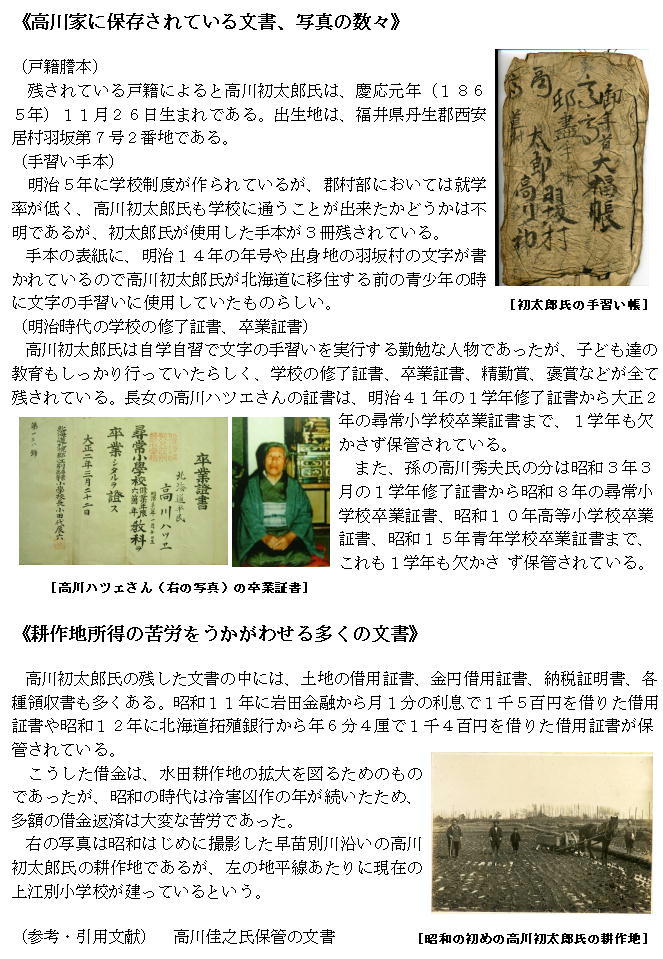 《高川家に保存されている文書、写真の数々》
（戸籍謄本）
残されている戸籍によると高川初太郎氏は、慶応元年（１８６
５年）１１月２６日生まれである。出生地は、福井県丹生郡西安
居村羽坂第７号２番地である。
（手習い手本）
明治５年に学校制度が作られているが、郡村部においては就学
率が低く、高川初太郎氏も学校に通うことが出来たかどうかは不
明であるが、初太郎氏が使用した手本が３冊残されている。
手本の表紙に、明治１４年の年号や出身地の羽坂村の文字が書
かれているので高川初太郎氏が北海道に移住する前の青少年の時
に文字の手習いに使用していたものらしい。
大福帳
羽坂村
太郎
高川初
［初太郎氏の手習い帳］
（明治時代の学校の修了証書、卒業証書）
高川初太郎氏は自学自習で文字の手習いを実行する勤勉な人物であったが、子ども達の
教育もしっかり行っていたらしく、学校の修了証書、卒業証書、精勤賞、褒賞などが全て
残されている。長女の高川ハツエさんの証書は、明治４１年の１学年修了証書から大正２
年の尋常小学校卒業証書まで、１学年も欠
かさず保管されている。
また、孫の高川秀夫氏の分は昭和３年３
月の１学年修了証書から昭和８年の尋常小
学校卒業証書、昭和１０年高等小学校卒業
証書、昭和１５年青年学校卒業証書まで、
これも１学年も欠かさ ず保管されている。
卒業證書
北海道平民
高川ハツヱ
尋常小學校ノ教科ヲ
卒業シタルヲ證ス
大正二年三月二十二日
［高川ハツェさん（右の写真）の卒業証書］
《耕作地所得の苦労をうかがわせる多くの文書》
高川初太郎氏の残した文書の中には、土地の借用証書、金円借用証書、納税証明書、各
種領収書も多くある。昭和１１年に岩田金融から月１分の利息で１千５百円を借りた借用
証書や昭和１２年に北海道拓殖銀行から年６分４厘で１千４百円を借りた借用証書が保
管されている。
こうした借金は、水田耕作地の拡大を図るためのもの
であったが、昭和の時代は冷害凶作の年が続いたため、
多額の借金返済は大変な苦労であった。
右の写真は昭和はじめに撮影した早苗別川沿いの高川
初太郎氏の耕作地であるが、左の地平線あたりに現在の
上江別小学校が建っているという。
（参考・引用文献） 高川佳之氏保管の文書
［昭和の初めの高川初太郎氏の耕作地］